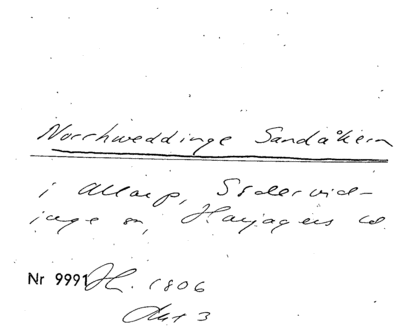 Norrhweddinge Sandåkern
i Allarp, Södervid-
inge sn, Harjagers hd.
Nr 9991 H. 1806
Akt 3